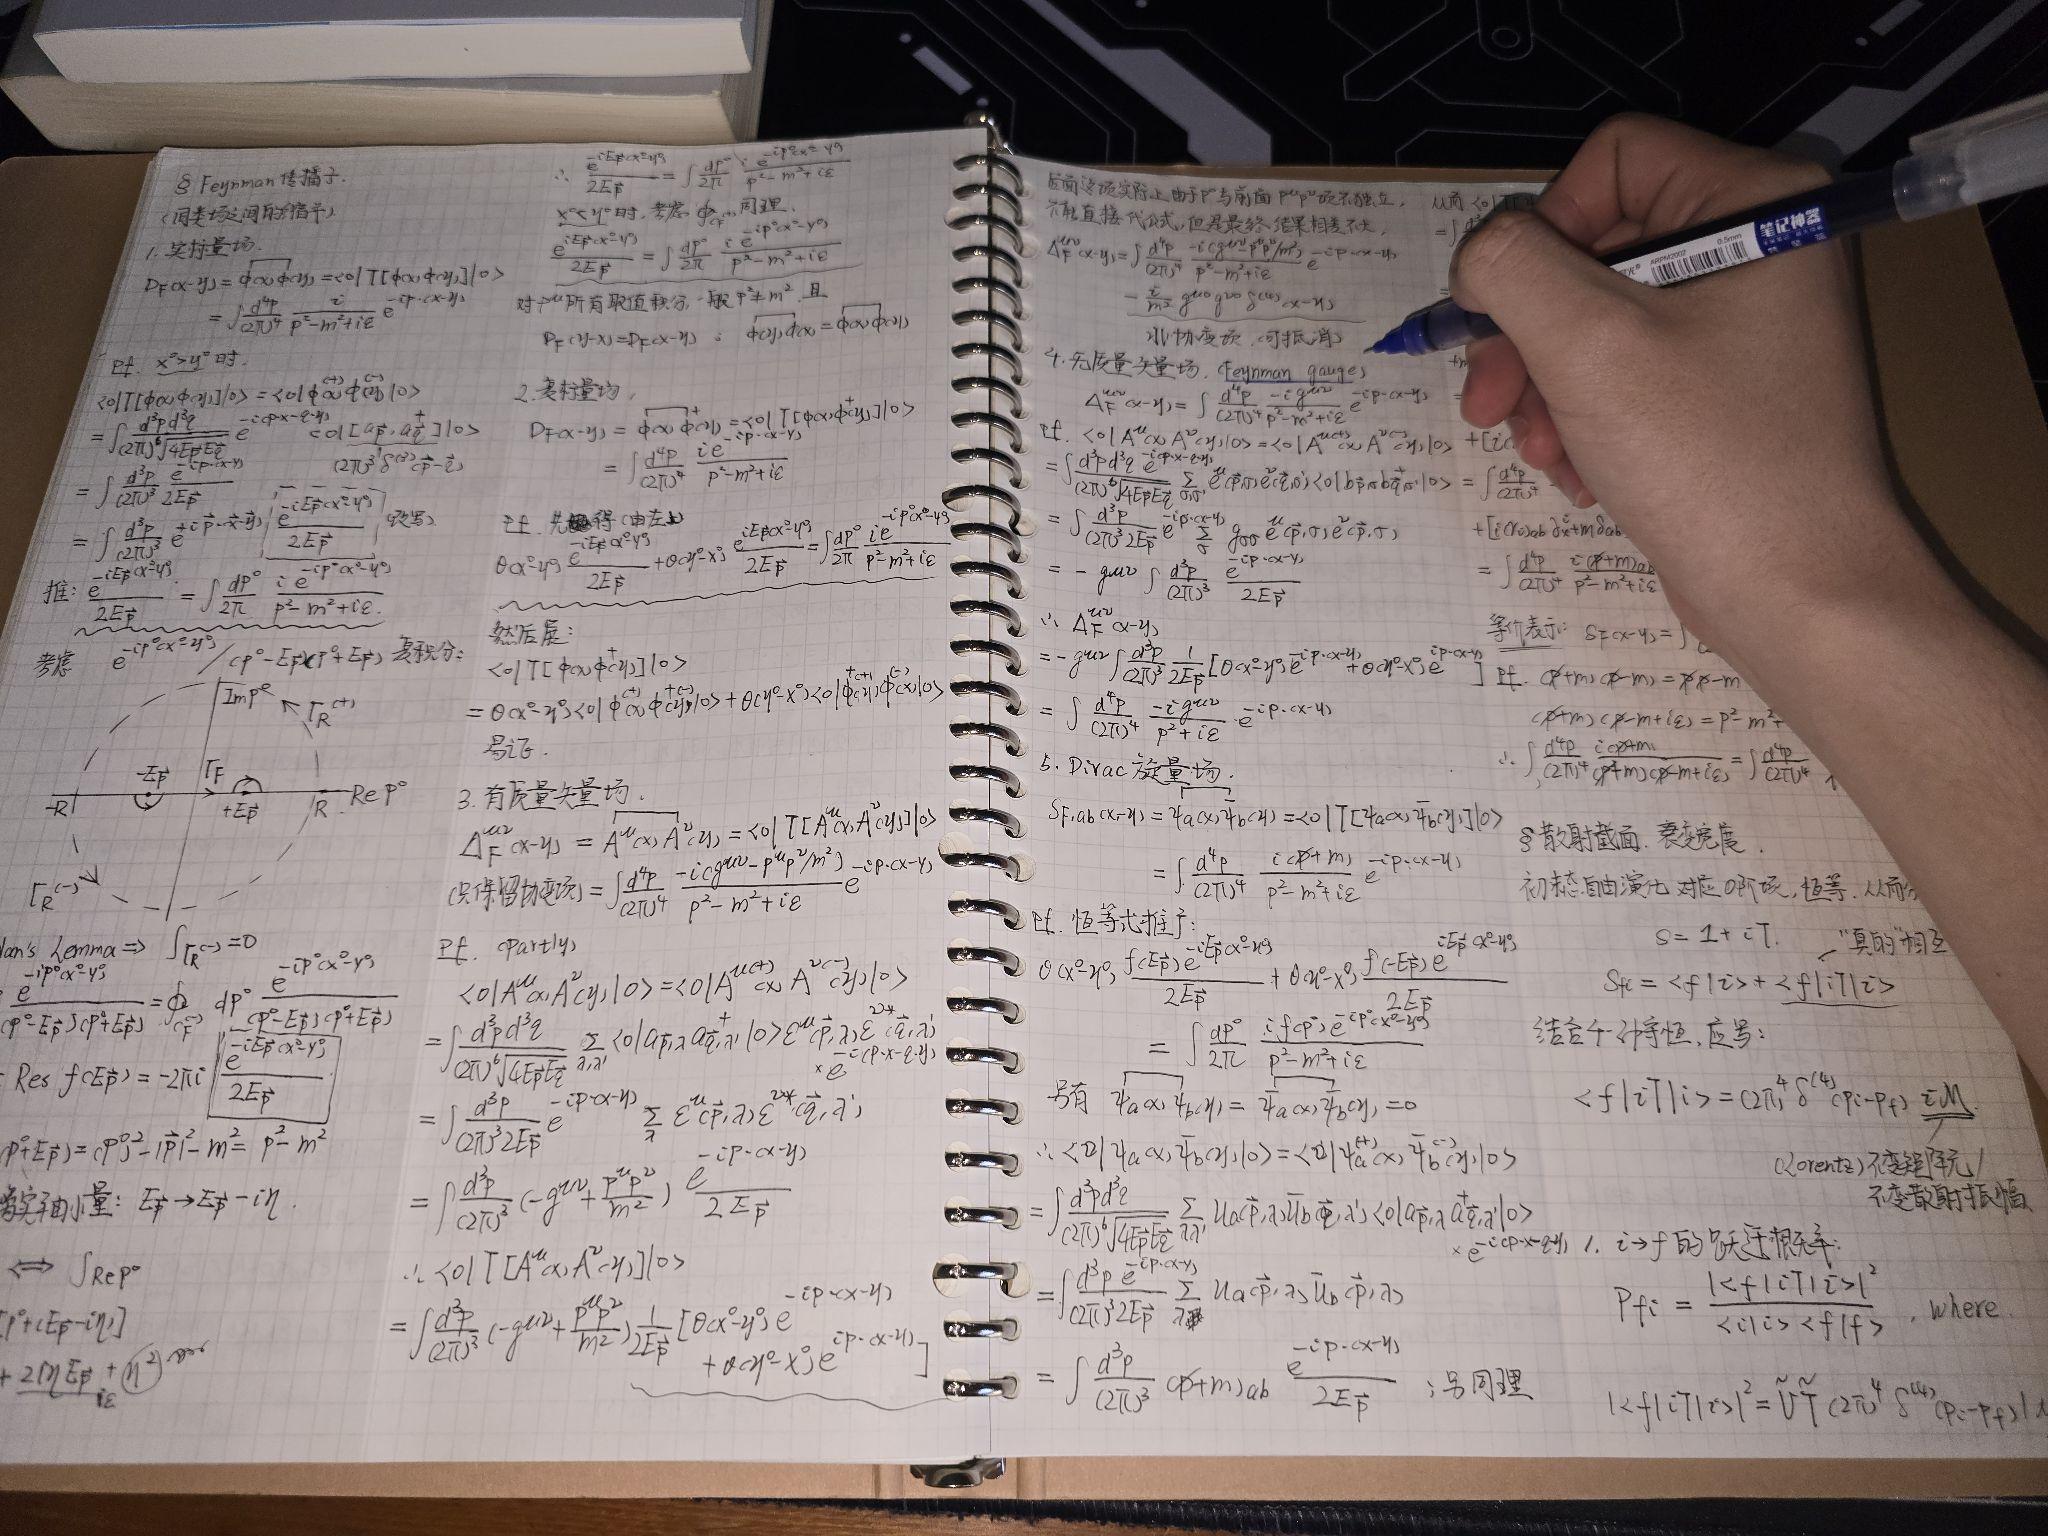 § Feynman 传播子.
(同类场之间的传播子)
1. 实标量场.
D_F(x-y) = φ(x)φ(y) = <0|T[φ(x)φ(y)]|0>
= ∫ d⁴p/(2π)⁴ i/(p²-m²+iε) e^{-ip·(x-y)}
Pf. x⁰>y⁰ 时.
<0|T[φ(x)φ(y)]|0> = <0|φ^{(+)}(x)φ^{(-)}(y)|0>
= ∫ d³p d³q/((2π)⁶√(4E_p E_q)) e^{-i(p·x-q·y)} <0|[a_p, a_q^+]|0>
(2π)³δ^{(3)}(p-q)
= ∫ d³p/(2π)³ e^{-ip·(x-y)}/2E_p
= ∫ d³p/(2π)³ e^{+ip·(x-y)} e^{-iE_p(x⁰-y⁰)}/2E_p (改写)
推: e^{-iE_p(x⁰-y⁰)}/2E_p = ∫ dp⁰/2π i e^{-ip⁰(x⁰-y⁰)}/(p²-m²+iε).
考虑 e^{-ip⁰(x⁰-y⁰)}/(p⁰-E_p)(p⁰+E_p) 复积分:
Im p⁰
Γ_R^{(+)}
-E_p Γ_F
-R +E_p R Re p⁰
Γ_R^{(-)}
dan's Lemma ⇒ ∫_{Γ_R^{(-)}} = 0
e^{-ip⁰(x⁰-y⁰)}/(p⁰-E_p)(p⁰+E_p) = ∮_{C_F^{(-)}} dp⁰ e^{-ip⁰(x⁰-y⁰)}/(p⁰-E_p)(p⁰+E_p)
Res f(E_p) = -2πi e^{-iE_p(x⁰-y⁰)}/2E_p
p⁰+E_p) = (p⁰)²-|p|²-m² = p²-m²
实轴小量: E_p → E_p-iη.
⟺ ∫_{Re p⁰}
[p⁰+(E_p-iη)]
+ 2iηE_p + (η²)
iε
∴ e^{-iE_p(x⁰-y⁰)}/2E_p = ∫ dp⁰/2π i e^{-ip⁰(x⁰-y⁰)}/(p²-m²+iε)
x⁰<y⁰ 时, 考虑 φ_{C_F^{(+)}} 同理.
e^{iE_p(x⁰-y⁰)}/2E_p = ∫ dp⁰/2π i e^{-ip⁰(x⁰-y⁰)}/(p²-m²+iε)
对 p^μ 所有取值积分, 一般 p²≠m², 且
D_F(y-x) = D_F(x-y) ; φ(y)φ(x) = φ(x)φ(y)
2. 复标量场.
D_F(x-y) = φ(x)φ^+(y) = <0|T[φ(x)φ^+(y)]|0>
= ∫ d⁴p/(2π)⁴ i e^{-ip·(x-y)}/(p²-m²+iε)
Pf. 先得(由左)
θ(x⁰-y⁰) e^{-iE_p(x⁰-y⁰)}/2E_p + θ(y⁰-x⁰) e^{iE_p(x⁰-y⁰)}/2E_p = ∫ dp⁰/2π i e^{-ip⁰(x⁰-y⁰)}/(p²-m²+iε)
然后展:
<0|T[φ(x)φ^+(y)]|0>
= θ(x⁰-y⁰)<0|φ^{(+)}(x)φ^{+(-)}(y)|0> + θ(y⁰-x⁰)<0|φ^{+(+)}(y)φ^{(-)}(x)|0>
易证.
3. 有质量矢量场.
Δ_F^{μν}(x-y) = A^μ(x)A^ν(y) = <0|T[A^μ(x)A^ν(y)]|0>
(只保留协变项) = ∫ d⁴p/(2π)⁴ -i(g^{μν}-p^μp^ν/m²)/(p²-m²+iε) e^{-ip·(x-y)}
Pf. (partly)
<0|A^μ(x)A^ν(y)|0> = <0|A^{μ(+)}(x)A^{ν(-)}(y)|0>
= ∫ d³p d³q/((2π)⁶√(4E_p E_q)) Σ_{λ,λ'} <0|a_{p,λ}a^+_{q,λ'}|0> ε^μ(p,λ)ε^{ν*}(q,λ')
× e^{-i(p·x-q·y)}
= ∫ d³p/((2π)³2E_p) e^{-ip·(x-y)} Σ_λ ε^μ(p,λ)ε^{ν*}(q,λ')
= ∫ d³p/(2π)³ (-g^{μν}+p^μp^ν/m²) e^{-ip·(x-y)}/2E_p
∴ <0|T[A^μ(x)A^ν(y)]|0>
= ∫ d³p/(2π)³ (-g^{μν}+p^μp^ν/m²) 1/2E_p [θ(x⁰-y⁰)e^{-ip·(x-y)}
+ θ(y⁰-x⁰)e^{ip·(x-y)}]
后面这项实际上由于p⁰与前面p^μp^ν项不独立,
不能直接代公式, 但是最终结果相差不大.
Δ_F^{μν}(x-y) = ∫ d⁴p/(2π)⁴ -i(g^{μν}-p^μp^ν/m²)/(p²-m²+iε) e^{-ip·(x-y)}
- i/m² g^{μ0}g^{ν0}δ^{(4)}(x-y)
非协变项, (可抵消)
4. 无质量矢量场. (Feynman gauge)
Δ_F^{μν}(x-y) = ∫ d⁴p/(2π)⁴ -ig^{μν}/(p²+iε) e^{-ip·(x-y)}
Pf. <0|A^μ(x)A^ν(y)|0> = <0|A^{μ(+)}(x)A^{ν(-)}(y)|0>
= ∫ d³p d³q e^{-i(p·x-q·y)}/((2π)⁶√(4E_p E_q)) Σ_{σ,σ'} e^μ(p,σ)e^ν(q,σ')<0|b_{p,σ}b^+_{q,σ'}|0>
= ∫ d³p/((2π)³2E_p) e^{-ip·(x-y)} Σ_σ g_{σσ}e^μ(p,σ)e^ν(p,σ)
= -g^{μν} ∫ d³p/(2π)³ e^{-ip·(x-y)}/2E_p
∴ Δ_F^{μν}(x-y)
= -g^{μν} ∫ d³p/(2π)³ 1/2E_p [θ(x⁰-y⁰)e^{-ip·(x-y)} + θ(y⁰-x⁰)e^{ip·(x-y)}]
= ∫ d⁴p/(2π)⁴ -ig^{μν}/(p²+iε) e^{-ip·(x-y)}
5. Dirac 旋量场.
S_{F,ab}(x-y) = ψ_a(x)ψ̄_b(y) = <0|T[ψ_a(x)ψ̄_b(y)]|0>
= ∫ d⁴p/(2π)⁴ i(p̸+m)/(p²-m²+iε) e^{-ip·(x-y)}
Pf. 恒等式推广:
θ(x⁰-y⁰) f(E_p)e^{-iE_p(x⁰-y⁰)}/2E_p + θ(y⁰-x⁰) f(-E_p)e^{iE_p(x⁰-y⁰)}/2E_p
= ∫ dp⁰/2π i f(p⁰)e^{-ip⁰(x⁰-y⁰)}/(p²-m²+iε)
另有 ψ_a(x)ψ_b(y) = ψ̄_a(x)ψ̄_b(y) = 0
∴ <Ω|ψ_a(x)ψ̄_b(y)|0> = <Ω|ψ_a^{(+)}(x)ψ̄_b^{(-)}(y)|0>
= ∫ d³p d³q/((2π)⁶√(4E_p E_q)) Σ_{λλ'} u_a(p,λ)ū_b(q,λ')<0|a_{p,λ}a^+_{q,λ'}|0>
× e^{-i(p·x-q·y)}
= ∫ d³p e^{-ip·(x-y)}/((2π)³2E_p) Σ_λ u_a(p,λ)ū_b(p,λ)
= ∫ d³p/(2π)³ (p̸+m)_{ab} e^{-ip·(x-y)}/2E_p ; 另同理
从而 <0|T
+[i(
= ∫ d⁴p/(2π)⁴
+[i(γ₀)_{ab}∂_x^i+mδ_{ab}
= ∫ d⁴p/(2π)⁴ i(p̸+m)_{ab}/(p²-m²+iε
等价表示: S_F(x-y) = ∫
Pf. (p̸+m)(p̸-m) = p̸p̸-m
(p̸+m)(p̸-m+iε) = p²-m²+
∴ ∫ d⁴p/(2π)⁴ i(p̸+m)/((p̸+m)(p̸-m+iε)) = ∫ d⁴p/(2π)⁴
§ 散射截面. 衰变宽度.
初末态自由演化 对应0阶项, 恒等. 从而
S = 1 + iT.
"真的"相互
S_{fi} = <f|i> + <f|iT|i>
结合4-动守恒, 应写:
<f|iT|i> = (2π)⁴δ^{(4)}(p_i-p_f) iM.
(Lorentz)不变矩阵元/
不变散射振幅
1. i→f 的跃迁概率:
P_{fi} = |<f|iT|i>|²/(<i|i><f|f>), where.
|<f|iT|i>|² = ṼT̃(2π)⁴δ^{(4)}(p_i-p_f)|
笔记神器
0.5mm
ARPM2002